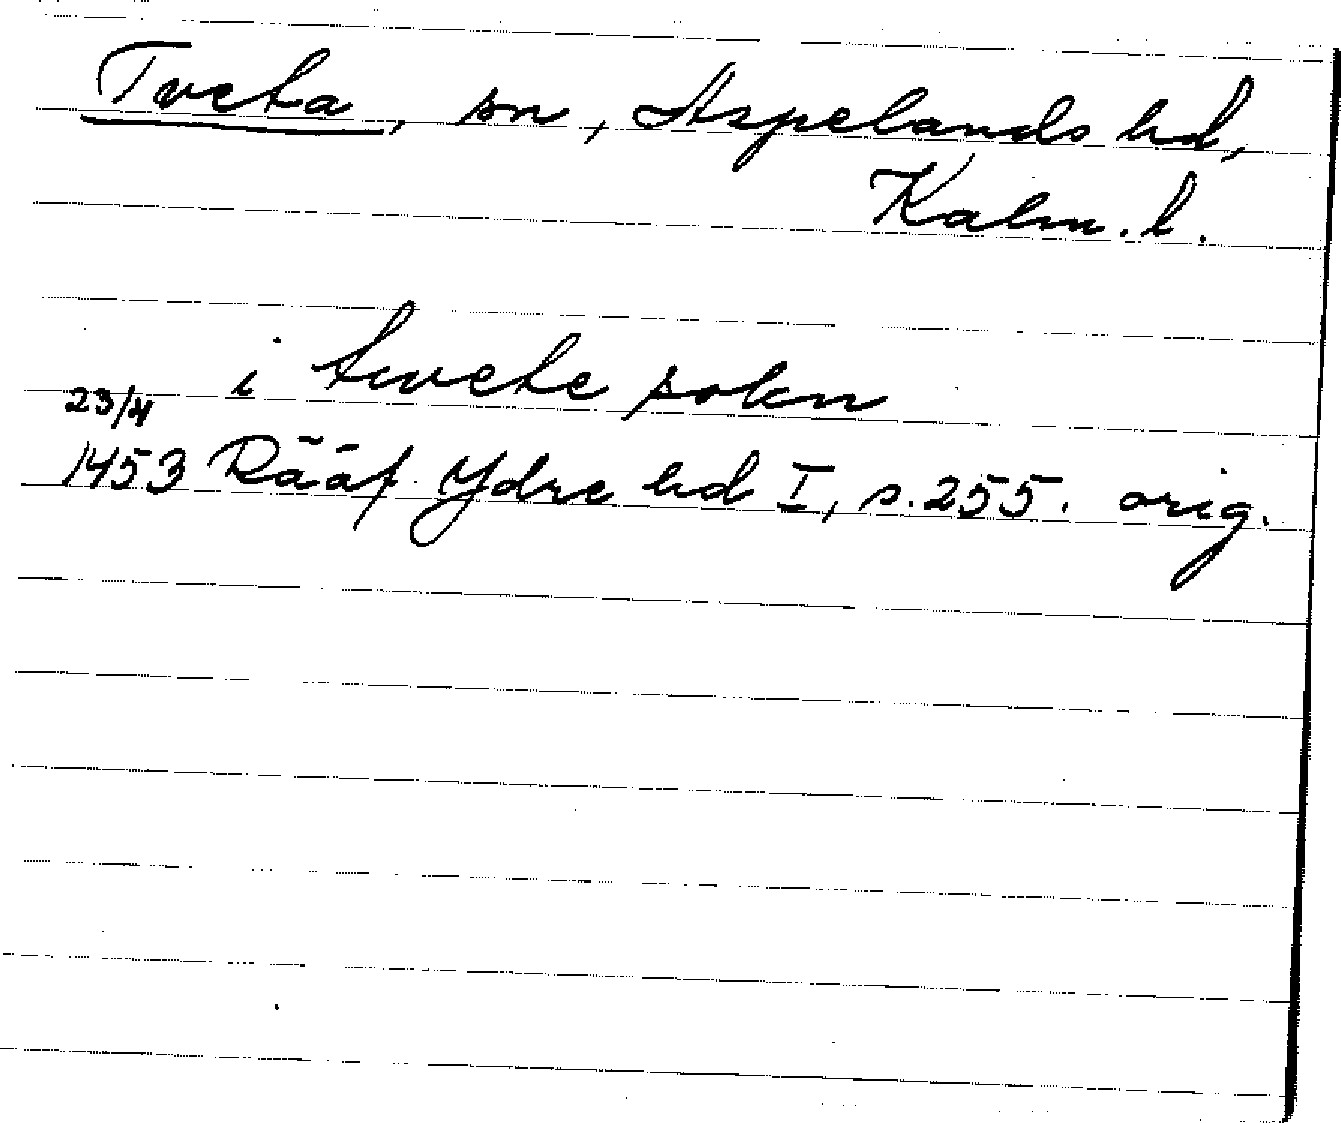 Tveta, sn, Aspelands hd,
Kalm. l.
i twete sokn
23/4
1453 Rääf Ydre hd I, s. 255. orig.